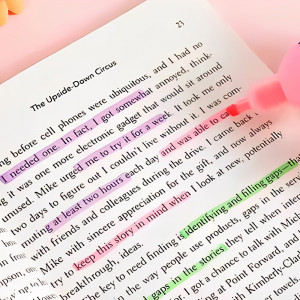 23
The Upside-Down Circus
ng before cell phones were ubiquitous, and I had no
I needed one. In fact, I got somewhat annoyed, think-
g it was one more electronic gadget that would sit around
unused. Mike urged me to try it for a week. It took me only
two days to figure out I couldn't live without it. I was com
muting at least two hours each day and was able to ca
with friends and colleagues during the drive. I came back t
Mike with sincere appreciation for the gift, and now always
to keep this story in mind when I look at new, potentially
breakthrough ideas.
the key to need finding is identifying and filling gaps th
the way people use products, gaps in the serv
gaps in the stories they tell when inter
I got a chance to talk with Mic
g at Point Forward, and
Kimberly-Cla